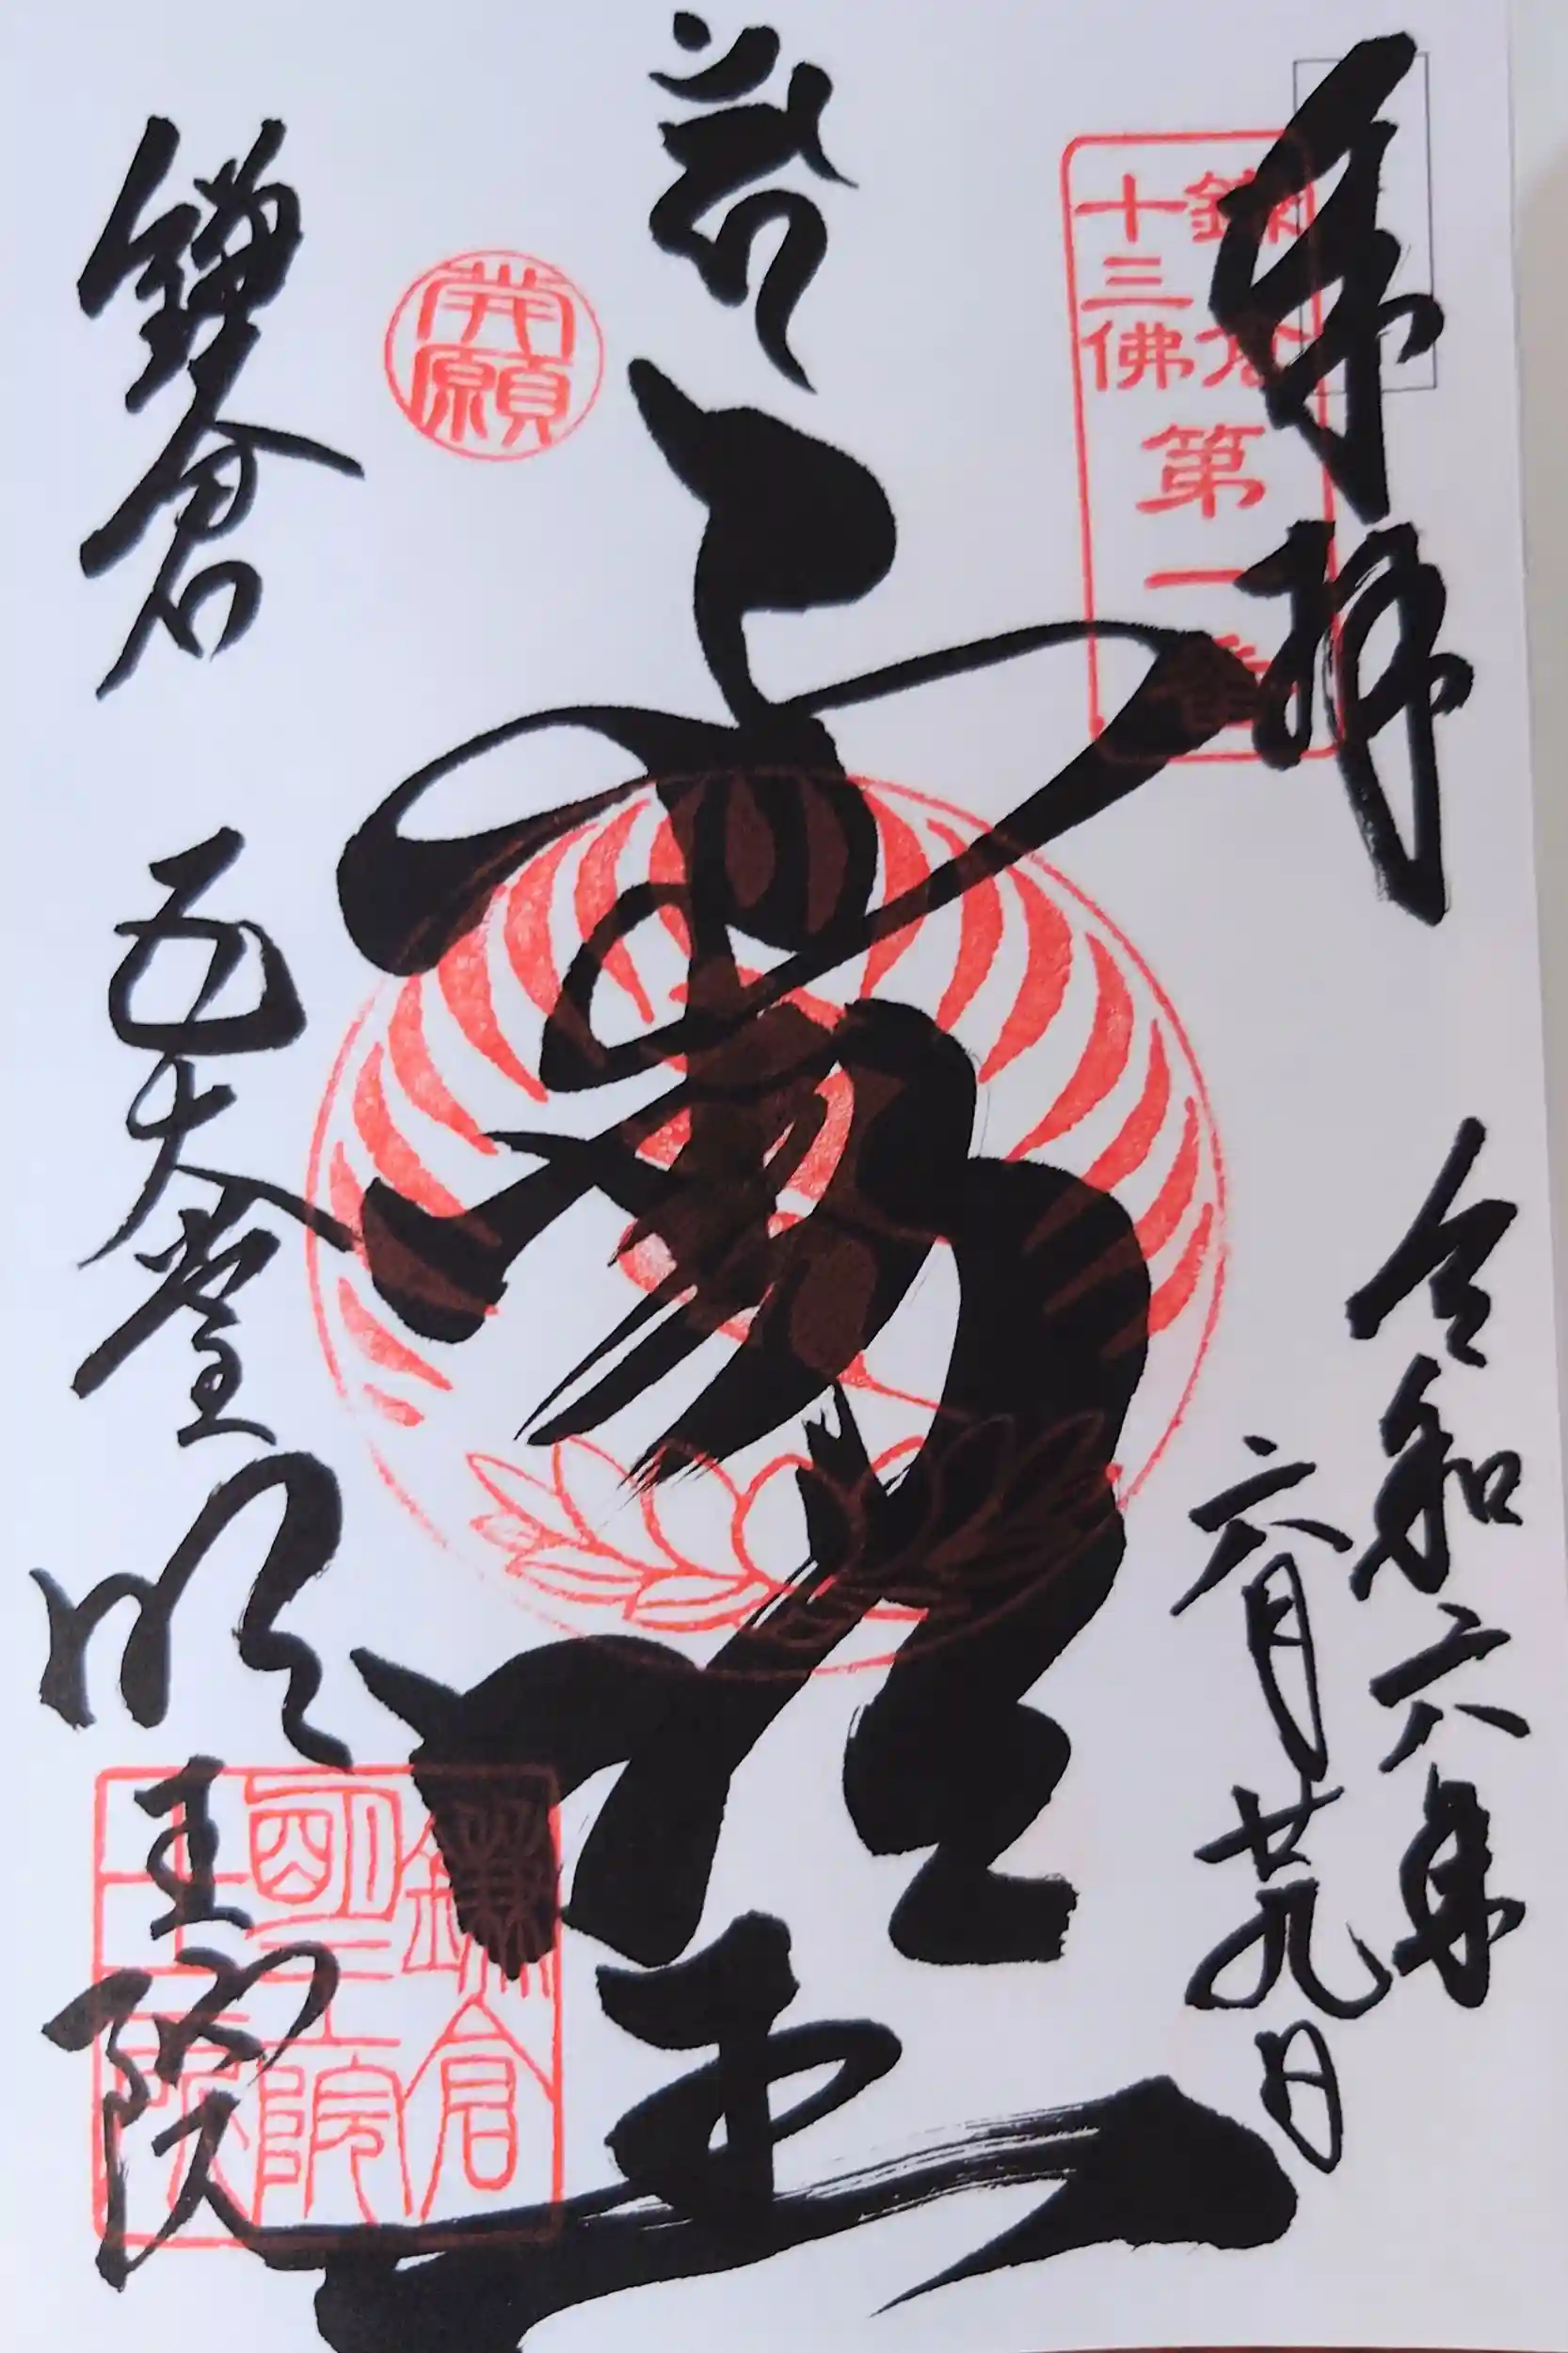 奉拝
鎌倉
十三佛
第一番
令和六年
六月廿九日
明王
開願
鎌倉 五大堂
明王院
鎌倉
明王院